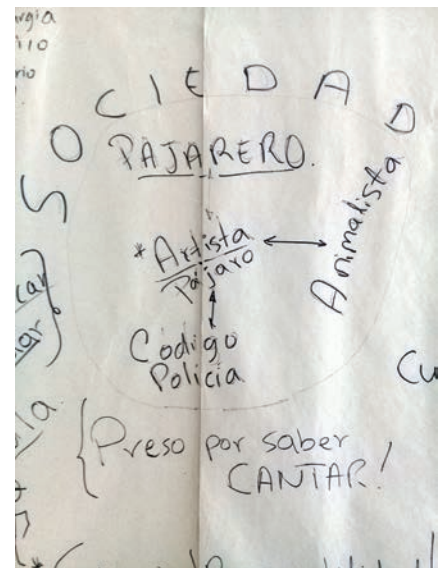 SOCIEDAD
PAJARERO.
*Artista
Pájaro
Animalista
Código
Policía
{Preso por saber
CANTAR!